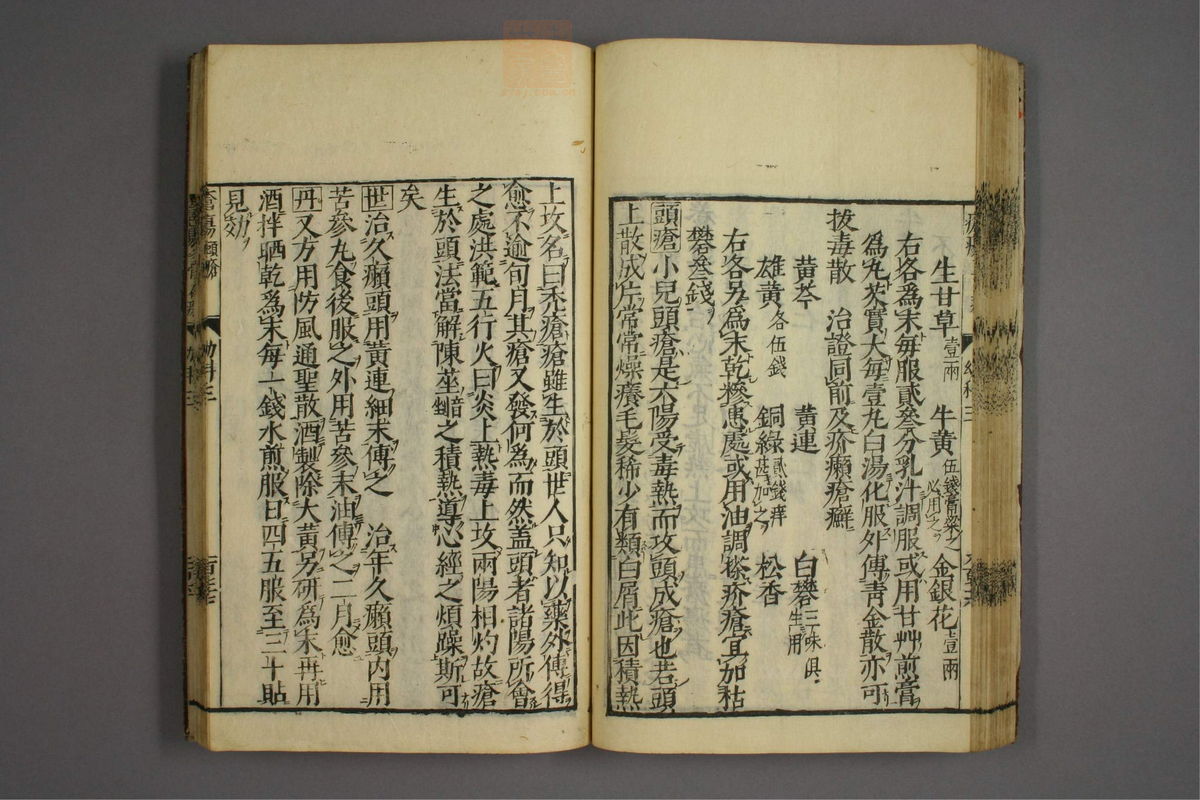 生甘草壹兩 牛黃伍錢膏粱之必用之 金銀花壹兩
右各爲末每服貳叁分乳汁調服或用甘艸煎膏
爲丸芡實大每壹丸白湯化服外傅青金散亦可
拔毒散 治證同前及疥癩瘡癬
黄芩 黄連 白礬三味俱生用
雄黄各伍錢 銅綠貳錢痒甚加之 松香
右各另爲末乾糝患處或用油調搽疥瘡宜加枯
礬叁錢
頭瘡小兒頭瘡是太陽受毒熱而攻頭成瘡也若頭
上散成片常常燥癢毛髮稀少有類白屑此因積熱
上攻名曰禿瘡瘡雖生於頭世人只知以藥外傅得
愈不逾旬月其瘡又發何爲而然盖頭者諸陽所會
之處洪範五行火曰炎上熱毒上攻兩陽相灼故瘡
生於頭法當解陳莝之積熱導心經之煩躁斯可
矣
世治久癩頭用黄連細末傅之 治年久癩頭内用
苦參丸食後服之外用苦參末油傅之二月愈
丹又方用防風通聖散酒製除大黄另研爲末再用
酒拌晒乾爲末每一錢水煎服日四五服至三十貼
見効